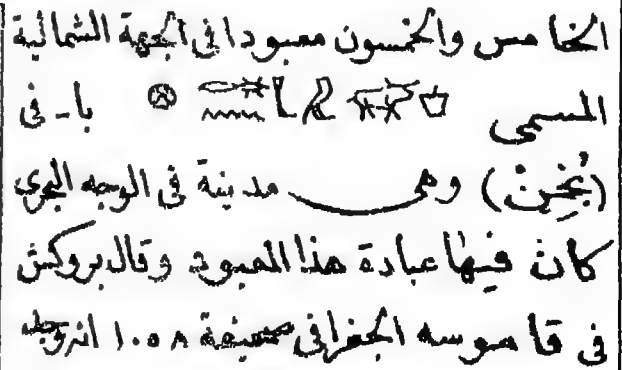 الخامس والخمسون معبودا فى الجهة الشمالية
المسمى با- فى
(بُخِنْ) وهى مدينة فى الوجه البحرى
كان فيها عبادة هذا المعبود وقال بروكش
فى قاموسه الجغرافى صحيفة ١٠٥٨ انه